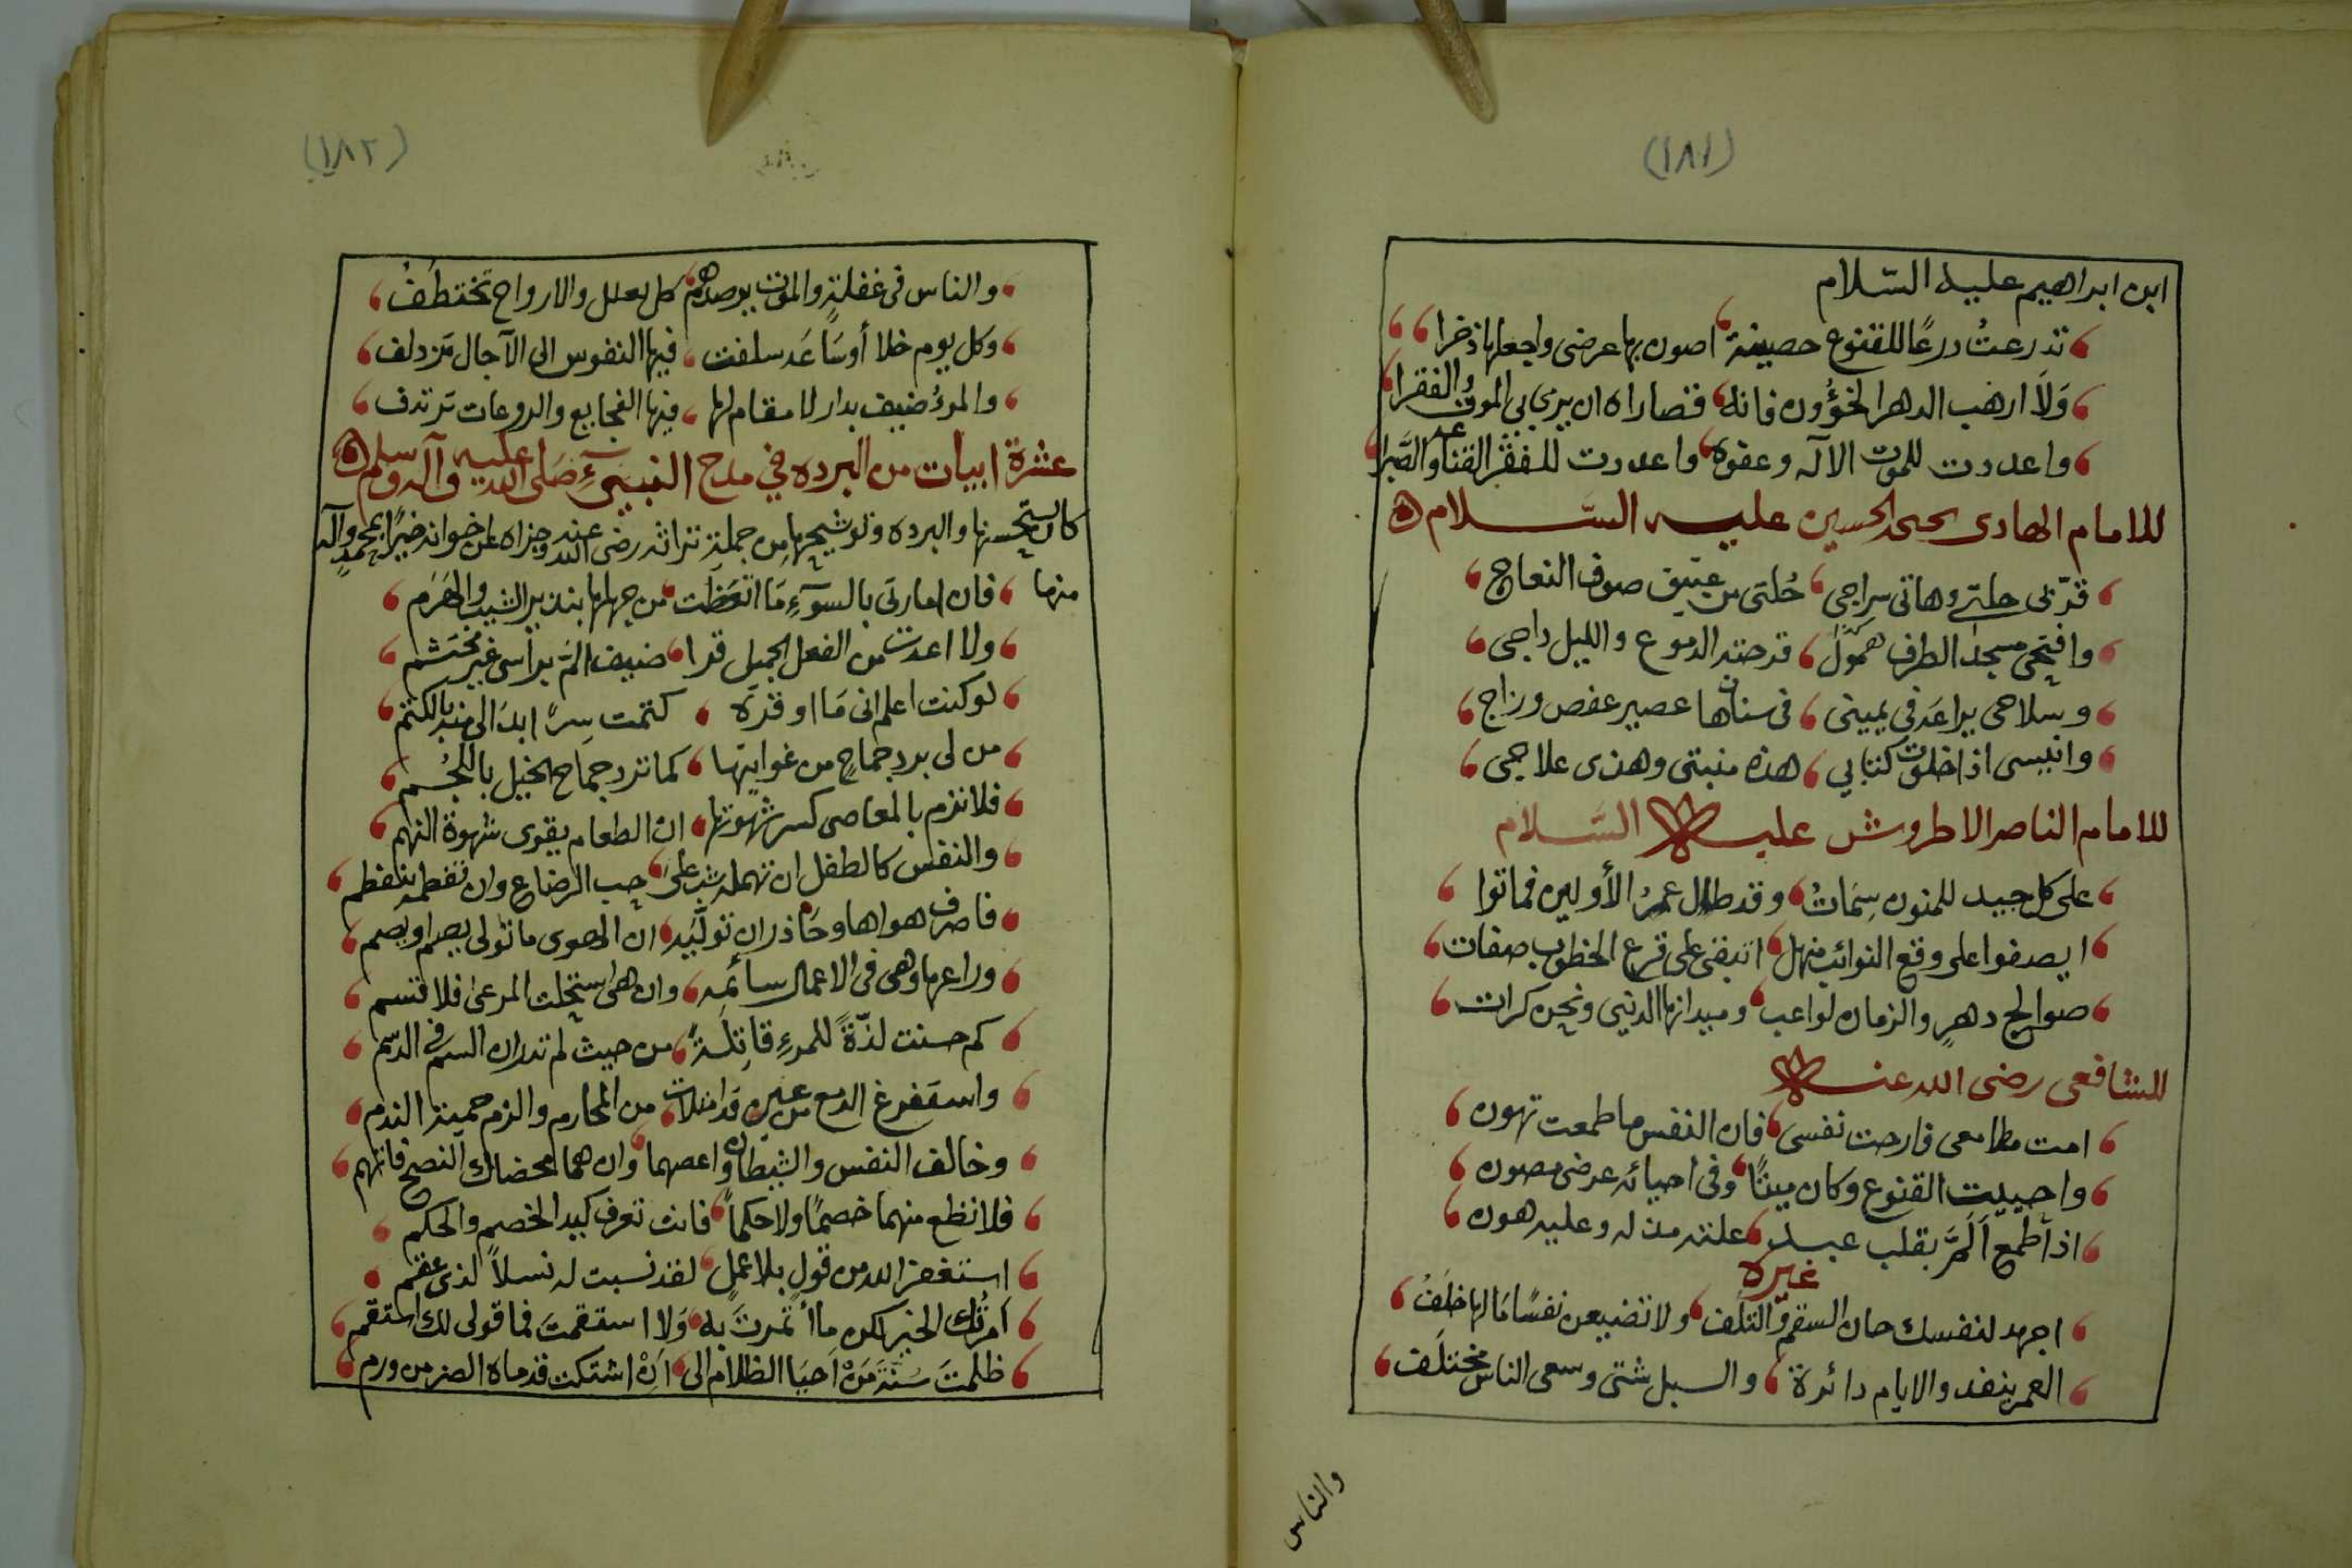 (١٨١)
ابن ابراهيم عليه السّلام
تدرعتُ درعًا للقنوع حصينة اصون بها عرضى واجعلها ذخرا
وَلَا ارهب الدهر الخؤُون فانه قصاراه ان يرمي بى الموت والفقرا
واعددت للموت الآله وعفوه واعددت للفقر القناعه والصّبرا
للامام الهادى يحيى الحسين عليه السّلام
قدّنى حلتي وهاتى سراجى خُلتى من عتيق صوف النعاج
وافتحى مسجد الطرف همولٌ قرحته الدموع والليل داجى
وسلاحى يراعَة فى يمينى فى سناها عصير عفص وزاج
وانيسى اذا خلوت كتابي هذه منيتى وهذى علاجى
للامام الناصر الاطروش عليه السّلام
على كل جيد للمنون سِمَاتُ وقد طال عمرُ الأولين فماتوا
ايصفوا على وقع النوائب منهل اتبقى على قرع الخطوب صفات
صوالج دهرٍ والزمان لواعب وميدانها الدنيى ونحن كرات
للشافعى رضى الله عنه
امت مطامعى فارحت نفسى فان النفس ما طمعت تهون
واحييت القنوع وكان ميتًا وفى احيائه عرضى مصون
اذا طمع اَلمَّ بقلب عبد علته مذله وعليه هون
غيره
اجهد لنفسك حان السقم والتلف ولا تضيعن نفسًا مَا لها خلَفُ
العمر ينفد والايام دائرة والسبل شتى وسعى الناس مختلف
والناس
(١٨٢)
والناس فى غفلةٍ والموت يرصدهم كل يعلل والارواح تختطَفُ
وكل يوم خلا أو سَاعَة سلفت فيها النفوس الى الآجال تزدلف
والمرءُ ضيف بدار لا مقام لها فيها الفجايع والروعات ترتدف
عشرة ابيات من البرده في مدح النبيّ صَلى الله عليه وآله وسلم
كان يستحسنها والبرده وتوشيحها من جملة تراثه رضى الله عنه وجزاه عن اخوانه خيرًا بمحمدٍ وآله
منها فان امارتى بالسوٓءِ مَا اتعَظت من جهلها بنذير الشيب والهَرَم
ولا اعدت من الفعل الجميل قرا ضيف المّ براسى غير محتشم
لو كنت اعلم انى مَا اوقره كتمت سِرًّا بدَا لى منه بالكتم
من لى برد جماحٍ من غوايتها كما ترد جماح الخيل باللُّجُم
فلا تزم بالمعاصى كسر شهوتها ان الطعام يقوى شهوة النهم
والنفس كالطفل ان تهمله شب على حب الرضاع وان تفطمه ينفطم
فاصرف هواها وحَاذر ان تولّيَه ان الهوى ما تولى يصم او يصم
وراعها وهى فى الاعمال سائمه وان هى استحلت المرعى فلا تسم
كم حسنت لذّةً للمرءِ قاتلةً من حيث لم تدر ان السم فى الدّسم
واستفرغ الدمع من عينٍ قد امتلات من المحارم والزم حمية الندم
وخالف النفس والشيطان واعصهما وان هما محضاك النصح فاتهم
فلا تطع منهما خصمًا ولا حكماً فانت تعرف كيد الخصم والحكم
استغفر الله من قولٍ بلا عملٍ لقد نسبت له نسلاً لذى عقم
اَمرْتُك الخير لكن ما أتمرت به وَلا استقمتَ فما قولى لك استقم
ظلمتَ سُنَّةَ مَنْ اَحيَا الظلام الى اَنْ اشتكت قدماه الضر من ورم